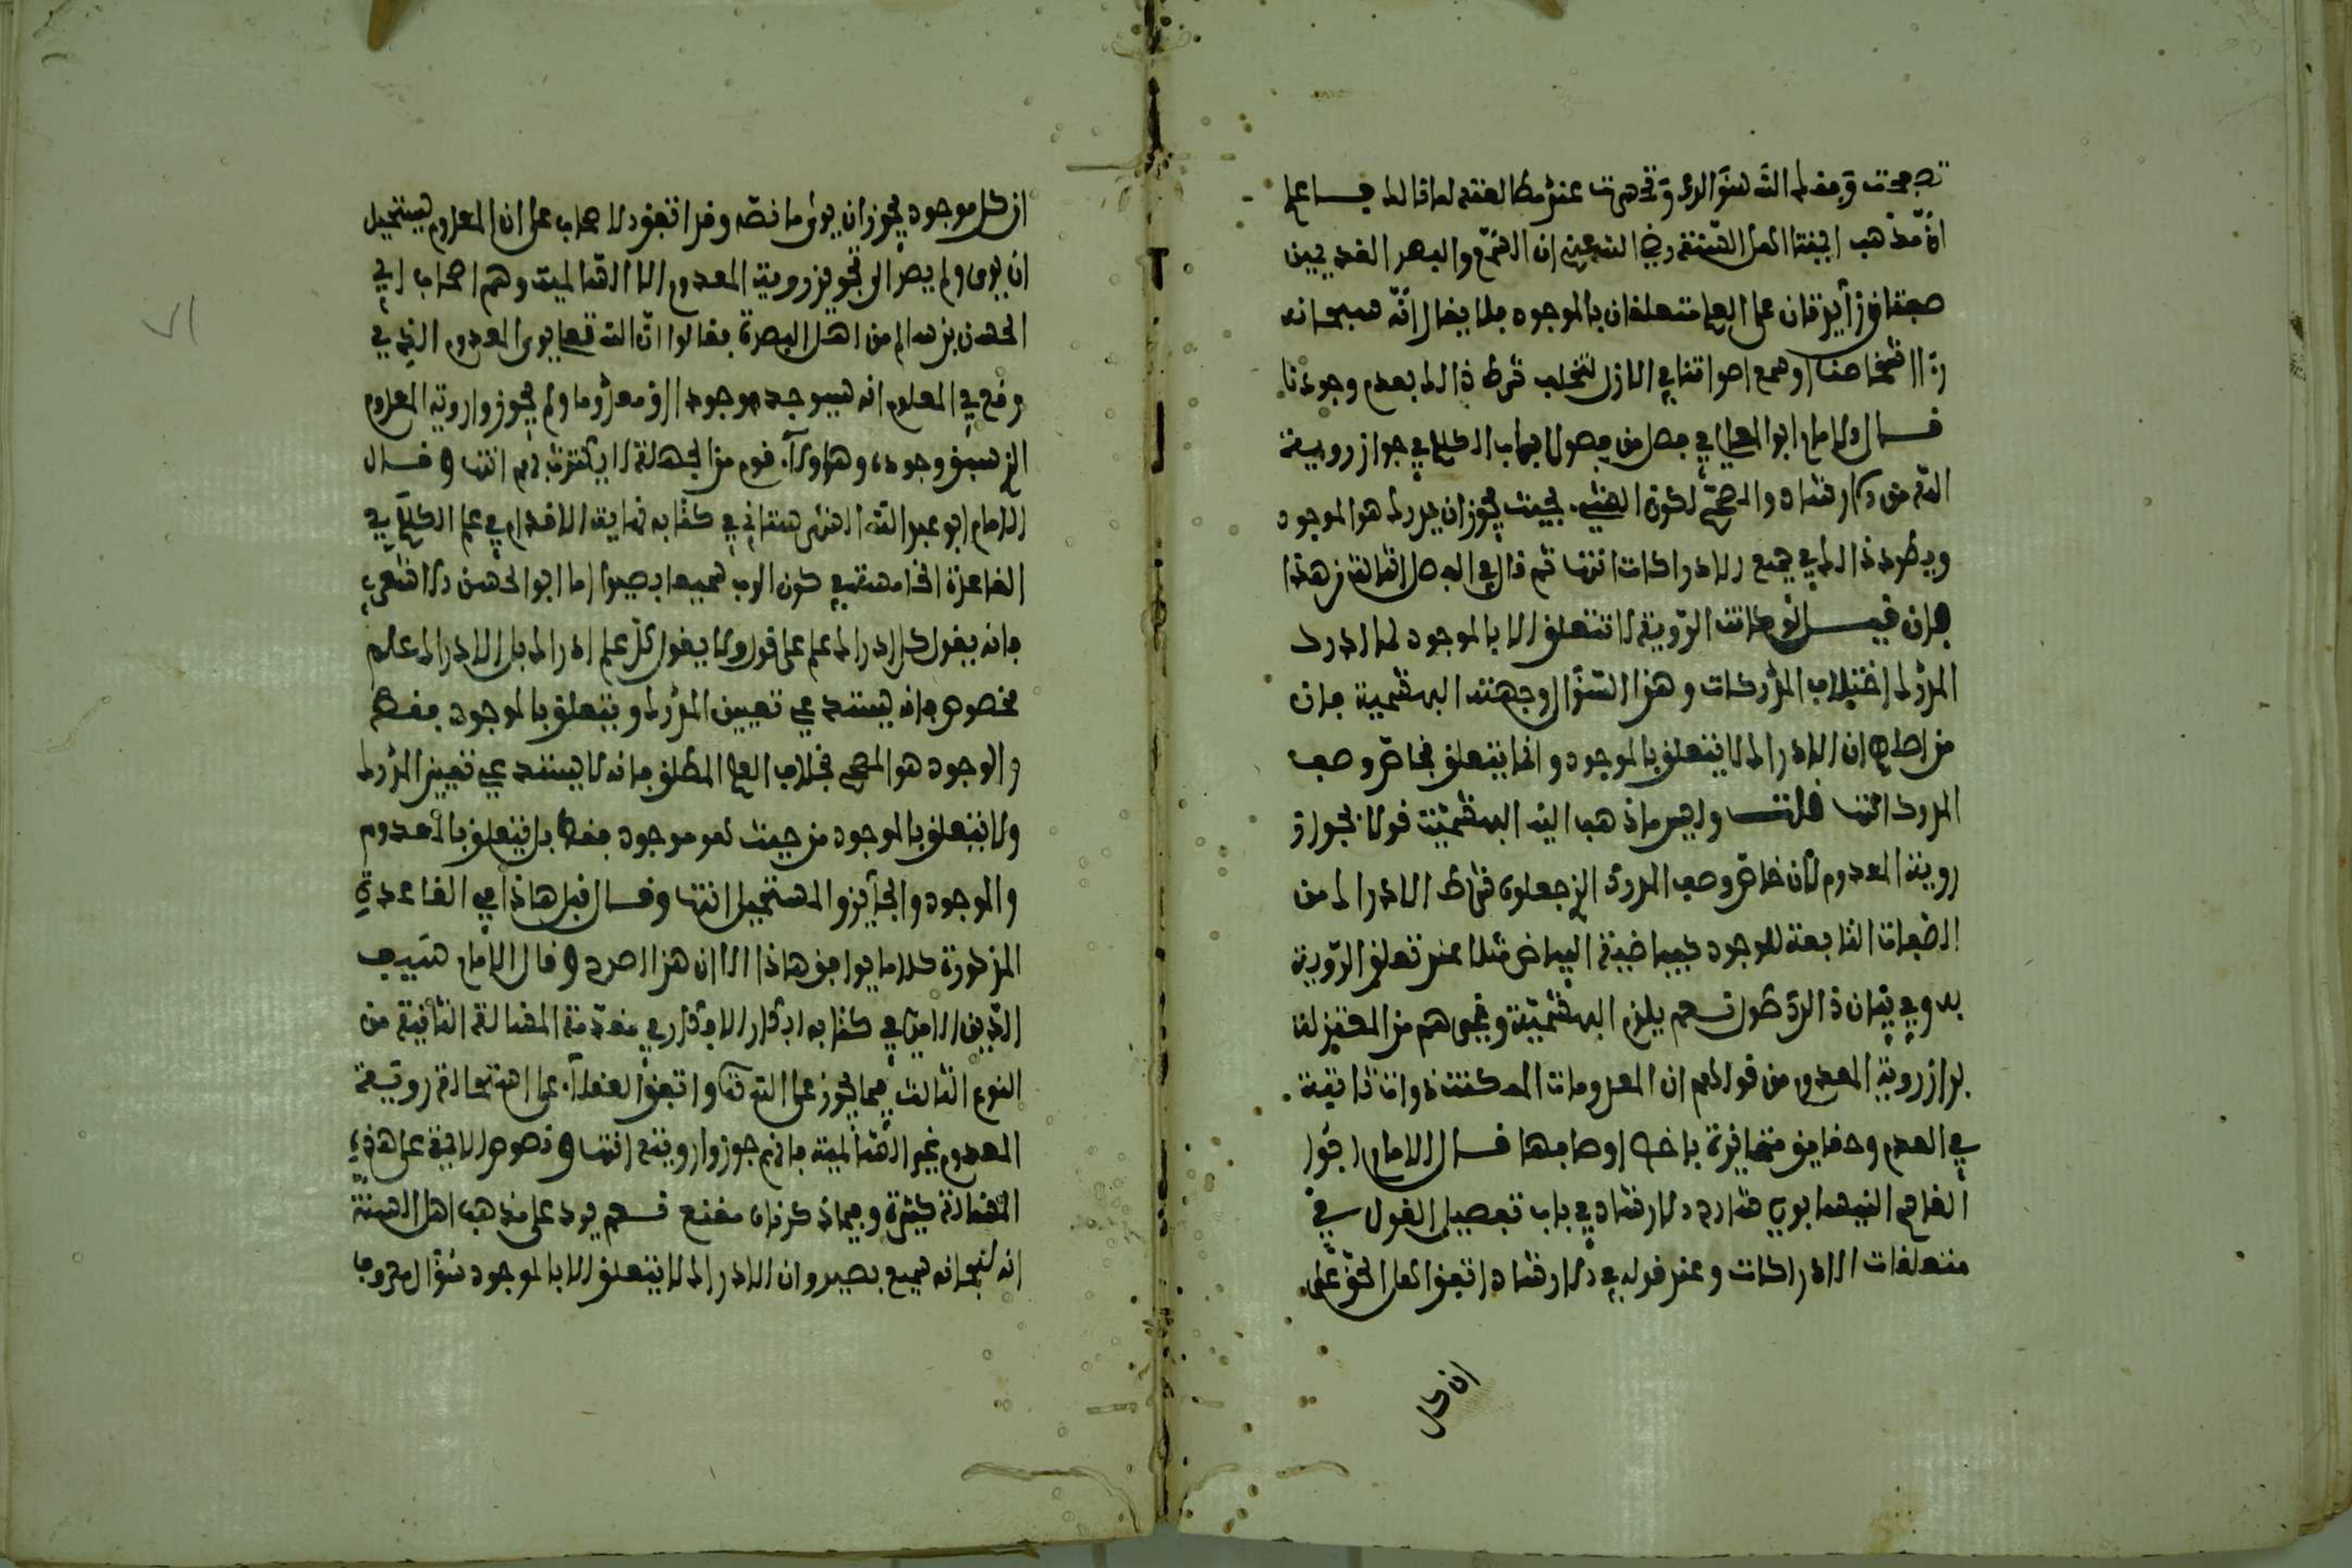 تصفحت وفقك الله سؤالك وتحريت عند مطالعته لما قالك فاعلم
ان مذهب ايمتنا اهل السنة رضي الله عنهم ان السمع والبصر القديمين
صفتان زايدتان على العلم متعلقتان بالموجود فلا يقال انه سبحانه
رءا اشخاصنا وسمع اصواتنا في الازل لتخلف شرط ذالك بعدم وجودنا
قال الامام ابو المعالي في فصل من فصول باب الكلام في جواز روية
الله من الارشاد والمصحح لكون الشيء بحيث يجوز ان يدرك هو الموجود
ويطرد ذالك في جميع الادراكات انتها ثم قال في الفصل الثالث من هذا
فان قيل لو كانت الروية لا تتعلق الا بالموجود لما ادرك
المدرك اختلاف المدركات وهذا السؤال وجهته البهشمية فان
من اصلهم ان الادراك لا يتعلق بالموجود وانما يتعلق بخاص وصف
المدرك انتها قلت وليس ما ذهب اليه البهشمية قولا بجواز
روية المعدوم لان خاص وصف المدرك الذي جعلوه شرط الادراك من
الصفات التابعة للوجود كبياضية البياض مثلا عند تعلق الروية
به وفي بيان ذالك طول نعم يلزم البهشمية وغيرهم من المعتزلة
جواز روية المعدوم من قولهم ان المعدومات الممكنة ذوات ثابتة
في العدم وحقايق متمايزة باخص اوصافها قال الامام ابو
القاسم النيسابوري شارح الارشاد في باب تفصيل القول في
متعلقات الادراكات وعند قوله في الارشاد اتفق اهل الحق على
ان كل
ان كل موجود يجوز ان يرى ما نصه وقد اتفق الاصحاب على ان المعدوم يستحيل
ان يرى ولم يصر الى تجويز روية المعدوم الا السالمية وهم اصحاب ابي
الحسن بن سالم من اهل البصرة فقالوا ان الله تعالى يرى المعدوم الذي في
وقع في المعلوم انه سيوجد موجودا او معدوما ولم يجوزوا روية المعدوم
الذي سبق وجوده وهاولاء قوم من الجهلة لا يكترث بهم انتها وقال
الامام ابو عبد الله الشهرستاني في كتابه نهاية الاقدام في علم الكلام في
القاعدة الخامسة في كون الرب سميعا بصيرا اما ابو الحسن الاشعري
فانه يقول كل ادراك علم على قول ولا يقول كل علم ادراك بل الادراك علم
مخصوص فانه يستدعي تعيين المدرك ويتعلق بالموجود فقط
والوجود هو المصحح بخلاف العلم المطلق فانه لا يستدعي تعيين المدرك
ولا يتعلق بالموجود من حيث هو موجود فقط بل يتعلق بالمعدوم
والموجود والجايز والمستحيل انتها وقال قبل هاذا في القاعدة
المذكورة كلاما يوافق هاذا الا ان هذا اصرح وقال الامام سيف
الدين الامدي في كتابه ابكار الافكار في مقدمة المسالة الثانية من
النوع الثالث فيما يجوز على الله تعالى واتفق العقلاء على استحالة روية
المعدوم غير السالمية فانهم جوزوا رويته انتها ونصوص الايمة على هذه
المسالة كثيرة وفيما ذكرناه مقنع نعم يرد على مذهب اهل السنة
انه سبحانه سميع بصير وان الادراك لا يتعلق الا بالموجود سؤال معروف